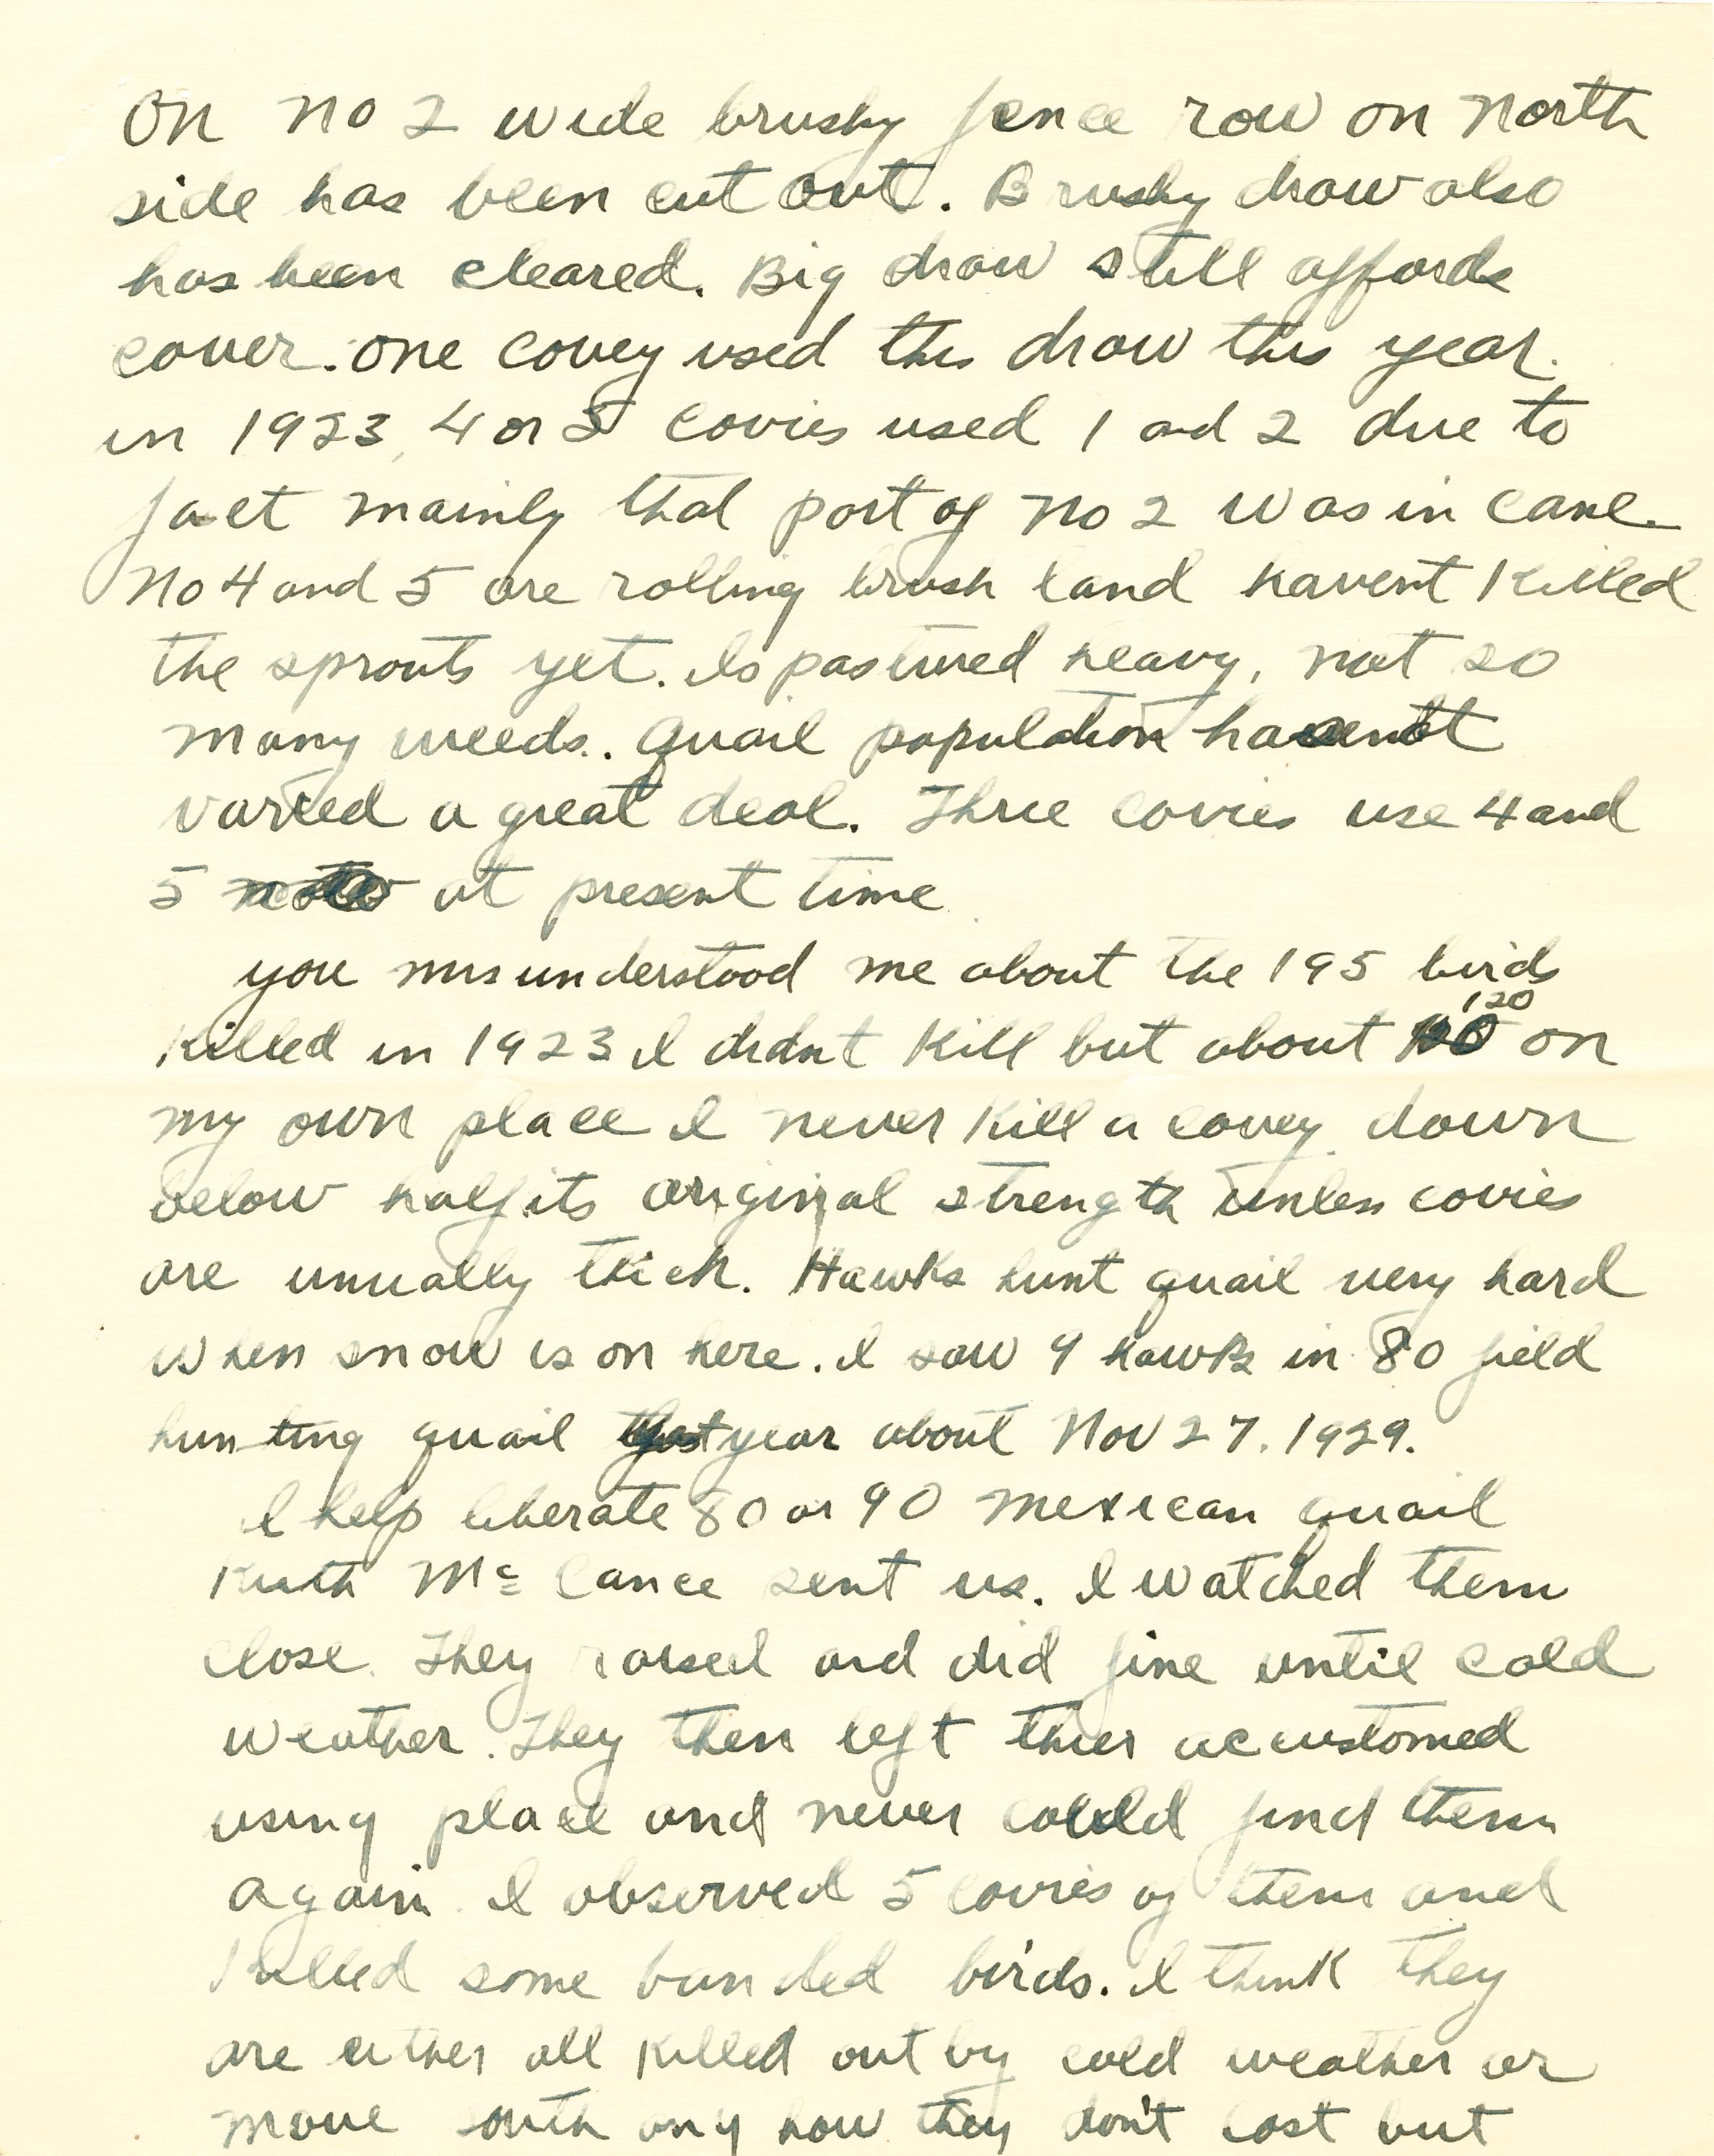 On No 2 wide brushy fence row on North
side has been cut out. Brushy draw also
has been cleared. Big draw still affords
cover. One covey used this draw this year.
in 1923, 4 or 5 covies used 1 and 2 due to
fact mainly that part of No 2 was in cane.
No 4 and 5 are rolling brush land havent killed
the sprouts yet. Is pastured heavy, not so
many weeds. Quail population havent
varied a great deal. Three covies use 4 and
5 at present time
you misunderstood me about the 195 birds
Killed in 1923 I didnt Kill but about 120 on
my own place I never Kill a covey down
below half its original strength unless covies
are unually thick. Hawks hunt quail very hard
when snow is on here. I saw 9 hawks in 80 field
hunting quail year about Nov 27, 1929.
I help liberate 80 or 90 Mexican quail
Mc Cance sent us. I watched them
close. They raised and did fine until cold
weather. They then left thier accustomed
using place and never could find them
again. I observed 5 covies of them and
Killed some banded birds. I think they
are either all Killed out by cold weather or
move south any how they don't last but